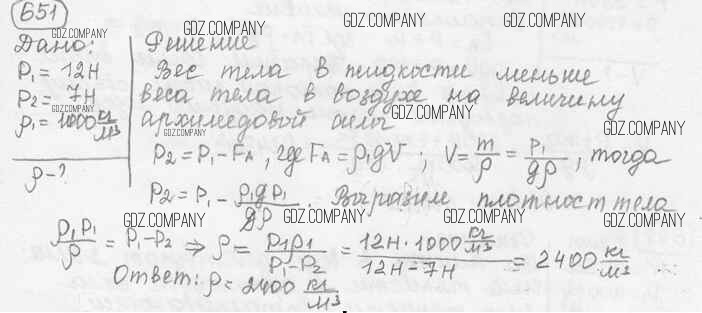 651
GDZ.COMPANY GDZ.COMPANY GDZ.COMPANY
Дано: Решение
P₁ = 12Н Вес тела в жидкости меньше
P₂ = 7Н веса тела в воздухе на величину
ρ₁ = 1000 кг/м³ архимедовой силы
GDZ.COMPANY GDZ.COMPANY GDZ.COMPANY GDZ.COMPANY
ρ-? P₂ = P₁ - F_A, где F_A = ρ₁gV; V = m/ρ = P₁/gρ, тогда
P₂ = P₁ - ρ₁gP₁/gρ. Выразим плотность тела
GDZ.COMPANY GDZ.COMPANY GDZ.COMPANY GDZ.COMPANY
ρ₁P₁/ρ = P₁-P₂ ⇒ ρ = P₁ρ₁/P₁-P₂ = 12Н·1000 кг/м³/12Н-7Н = 2400 кг/м³
Ответ: ρ = 2400 кг/м³